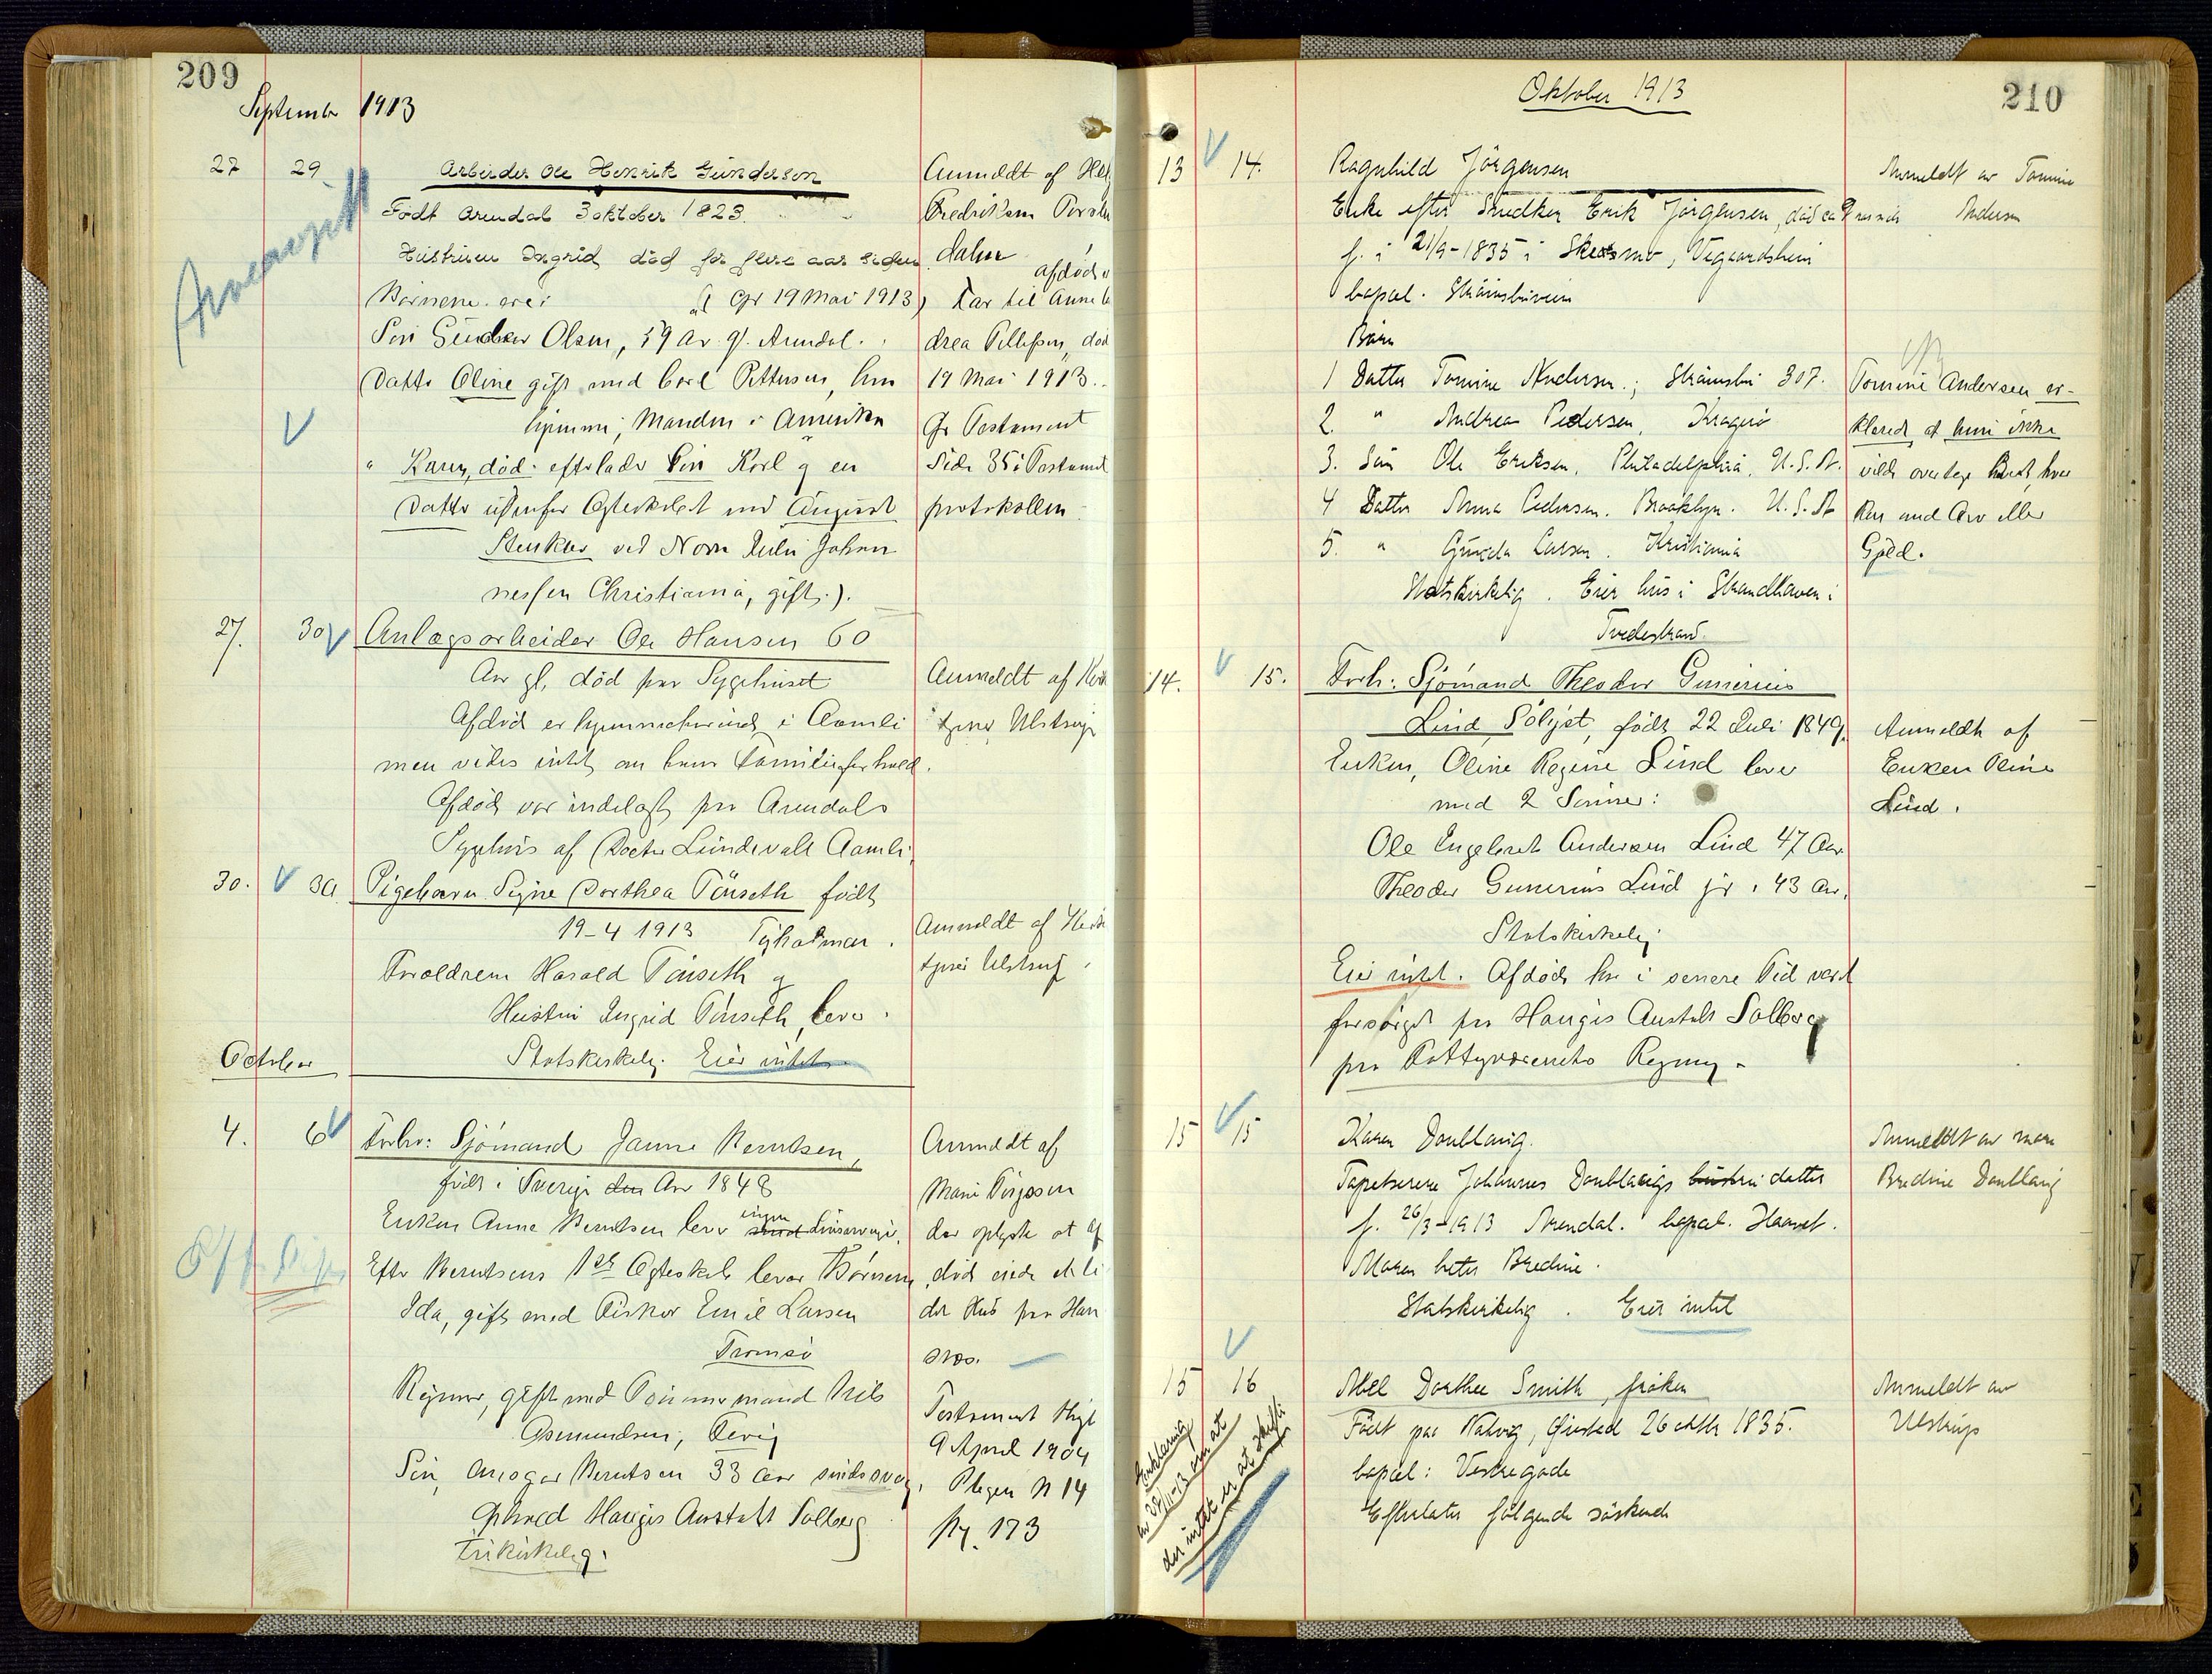 209
September 1913
27 29 Arbeider Ole Henrik Gundersen
Født Arendal 3 oktober 1823.
Hustruen Ingrid død for flere aar siden
Børnene ere: Gr 19 Mai 1913)
Søn Gunder Olsen, 59 Ar gl. Arendal.
Datter Oline gift med Carl Pettersen, hun
hjemme, Manden i Amerika
" Karen, død. efterlader Søn Karl og en
Datter udenfor Ægteskabet med August
Stenkler ved Navn Julie Johan
nessen Christiania, gift.).
Anmeldt af
Fredriksen
dalen
afdøde
har til Anne
drea Pellefsen, død
19 Mai 1913.
Gr Testament
Side 35 i Testament
protokollen
27. 30 Anlægsarbeider Ole Hansen 60
Aar gl, død paa Sygehuset
Afdød er hjemmehørende i Aamli
men vides intet om hans Familieforhold.
Afdød var indelagt paa Arendals
Sygehus af Doctor Lundevall Aamli.
Anmeldt af
Ulstrup
30. 30 Pigebarn Signe Dorthea Tønseth født
19-4 1913 Tyholmen.
Forældrene Harald Tønseth og
Hustru Ingrid Tønseth, lever.
Statskirkelig. Eier intet
Anmeldt af
Ulstrup
October
4. 6 Forhv: Sjømand Janne Berntsen,
født i Sverige den Aar 1848
Enken Anne Berntsen lever ingen Livsarvinger.
Efter Berntsens 1ste Ægteskab lever Børnene
Ida, gift med Fisker Emil Larsen
Tromsø
Regine, gift med Tømmermand Nils
Asmundsen, Fevig
Søn, Ansgar Berntsen 33 Aar sindssvag,
Ophold Hauges Anstalt Solberg
Frikirkelig.
Anmeldt af
Marie Torgosen
der oplyste at af
død eiede et li
det Hus paa Han
snes.
Testament
9 April 1904
N 14
pag. 173
210
Oktober 1913
13 14. Ragnhild Jörgensen
Enke efter Snedker Erik Jörgensen, död
f. i 21/9-1835 i, Vegaardshein
bopæl. Strömsbuveien
Börn
1 Datter Tomine Andersen.; Strömsbu 307.
2. " Andrea Pedersen, Kragerö
3. Sön Ole Eriksen, Philadelphia, U.S.A.
4 Datter Anna Pedersen. Brooklyn. U.S.A
5. " Gunda Larsen. Kristiania
Statskirkelig. Eier hus i Strandhaven i
Tvedestrand.
Anmeldt av Tomine
Andersen
Tomine Andersen er-
klæred, at hun ikke
vilde overtage Boet, hver
ken med Arv eller
Gjeld.
14. 15. Forh: Sjömand Theodor Gunerius
Lind, født 22 Juli 1849.
Enken, Oline Regine Lind lever
med 2 Sønner:
Ole Engebret Andersen Lind 47 Aar
Theodor Gunerius Lind jr. 43 Aar.
Statskirkelig
Eier intet. Afdøde har i senere Tid vært
forsørget paa Hauges Anstalt Solberg
paa Fattigvæsenets Regning.
Anmeldt af
Enken Oline
Lind.
15 15 Karen Doublaug.
Tapetserer Johannes Doublaugs hustru datter
f. 26/3-1913 Arendal. bopæl. Haavet.
Moren heter Bredine.
Statskirkelig. Eier intet
Anmeldt av moren
Bredine Doublaug
15 16 Abel Dorthee Smith, fröken
Födt paa Natvig, Öiestad 26 okt 1835.
bopæl: Vestregade
Efterlater fölgende söskende
Anmeldt av
Ulstrup
Erklæring
av 28/11-13 om at
der intet er at skifte